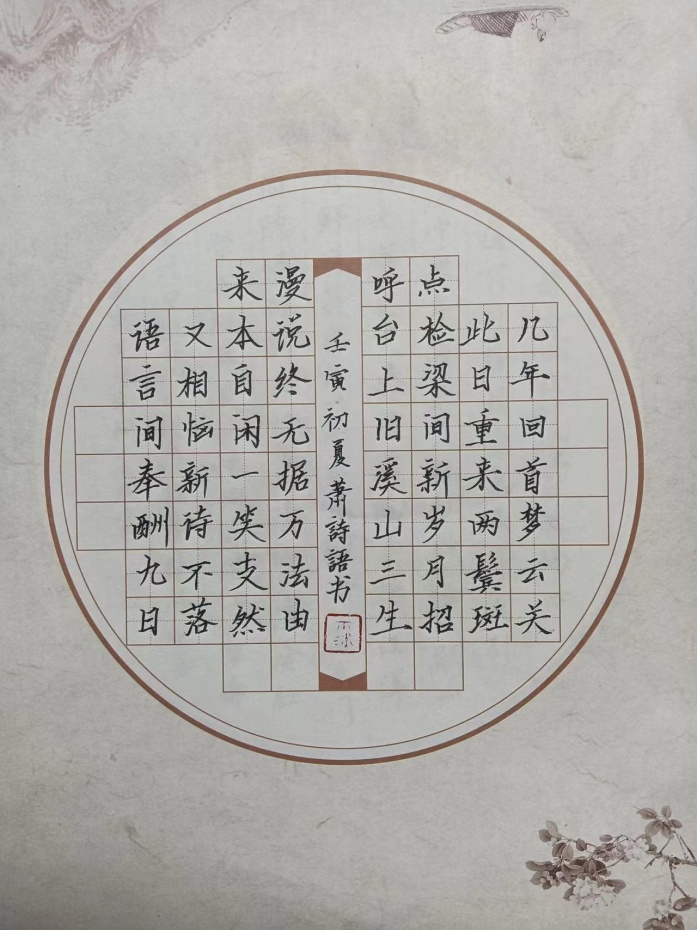 几年回首梦云关
此日重来两鬓斑
点检梁间新岁月招
呼台上旧溪山三生
壬寅初夏萧詩語书
漫说终无据万法由
来本自闲一笑支然
又相恼新待不落
语言间奉酬九日